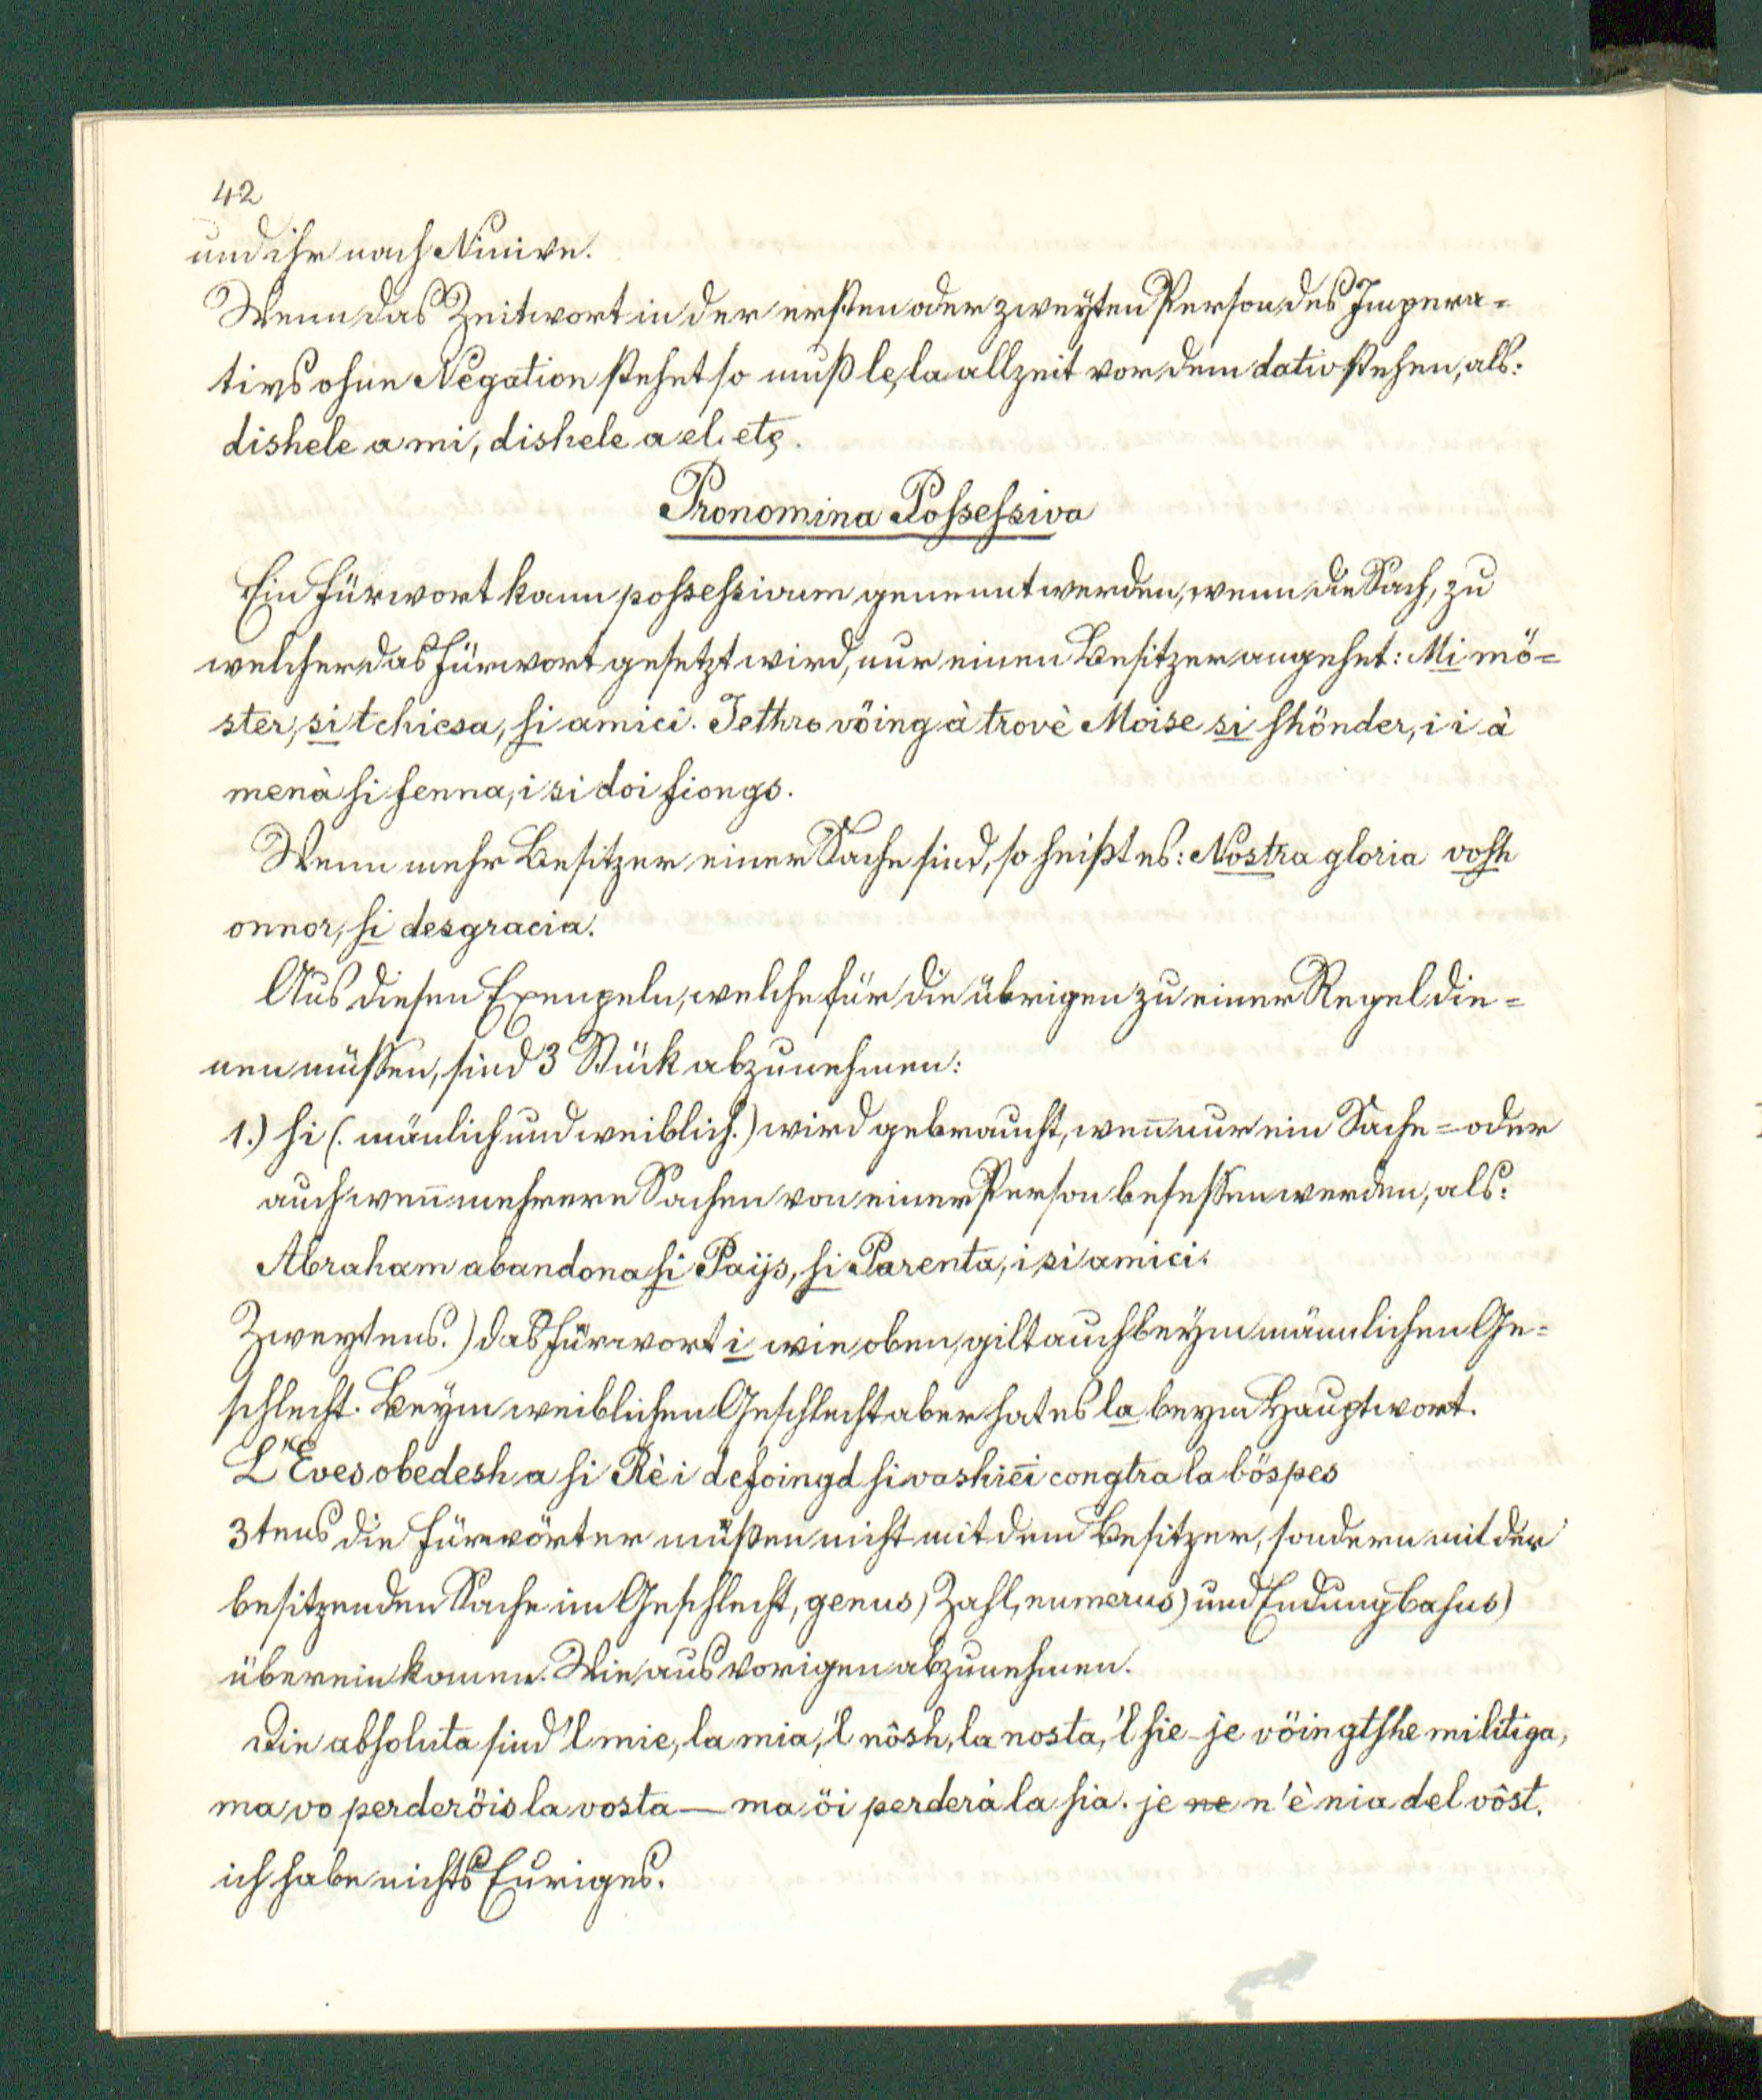 42
und ihr nach Ninive.
Wenn das Zeitwort in der ersten oder zweyten Person des Impera=
tivs ohne Negation stehet so muß le, la allzeit vor dem dativ stehen, als:
dishele a mi, dishele a el. etc.
Pronomina Possessiva
Ein Fürwort kann possessivum genennt werden, wenn die Sach, zu
welcher das Fürwort gesetzt wird, nur einen Besitzer angehet: Mi mö=
ster, si tchiesa, si amici. Jethro vöing à trovè Moise si shönder, i i à
menà si fenna, i si doi fiongs.
Wenn mehr Besitzer einer Sache sind, so heißt es: Nostra gloria vosh
onnor, si desgracia.
Aus diesen Exempeln, welche für die übrigen zu einer Regel die=
nen müssen, sind 3 Stük abzunehmen:
1.) si (. mänlich und weiblich.) wird gebraucht, weñ nur ein Sache = oder
auch weñ mehrere Sachen von einer Person besessen werden, als:
Abraham abandona si Paÿs, si Parenta, i si amici.
Zweytens.) das Fürwort i wie oben, gilt auch beym männlichen Ge=
schlecht. Beym weiblichen Geschlecht aber hat es la beym Hauptwort.
L'Eves obedesh a si Rè i defoingd si vashiëi congtra la böspes
3tens die Fürwörter müßen nicht mit dem Besitzer, sondern mit der
besitzenden Sache im Geschlecht, genus) Zahl, numerus) und Endung basus)
überein komen. Wie aus vorigen abzunehmen.
Die absoluta sind 'l mie, la mia, 'l nôsh, la nosta, 'l sie – je vöingtshe mi litiga,
ma vo perderöis la vosta — ma öi perderà la sia. je ne n'è nia del vôst.
ich habe nichts Euriges.